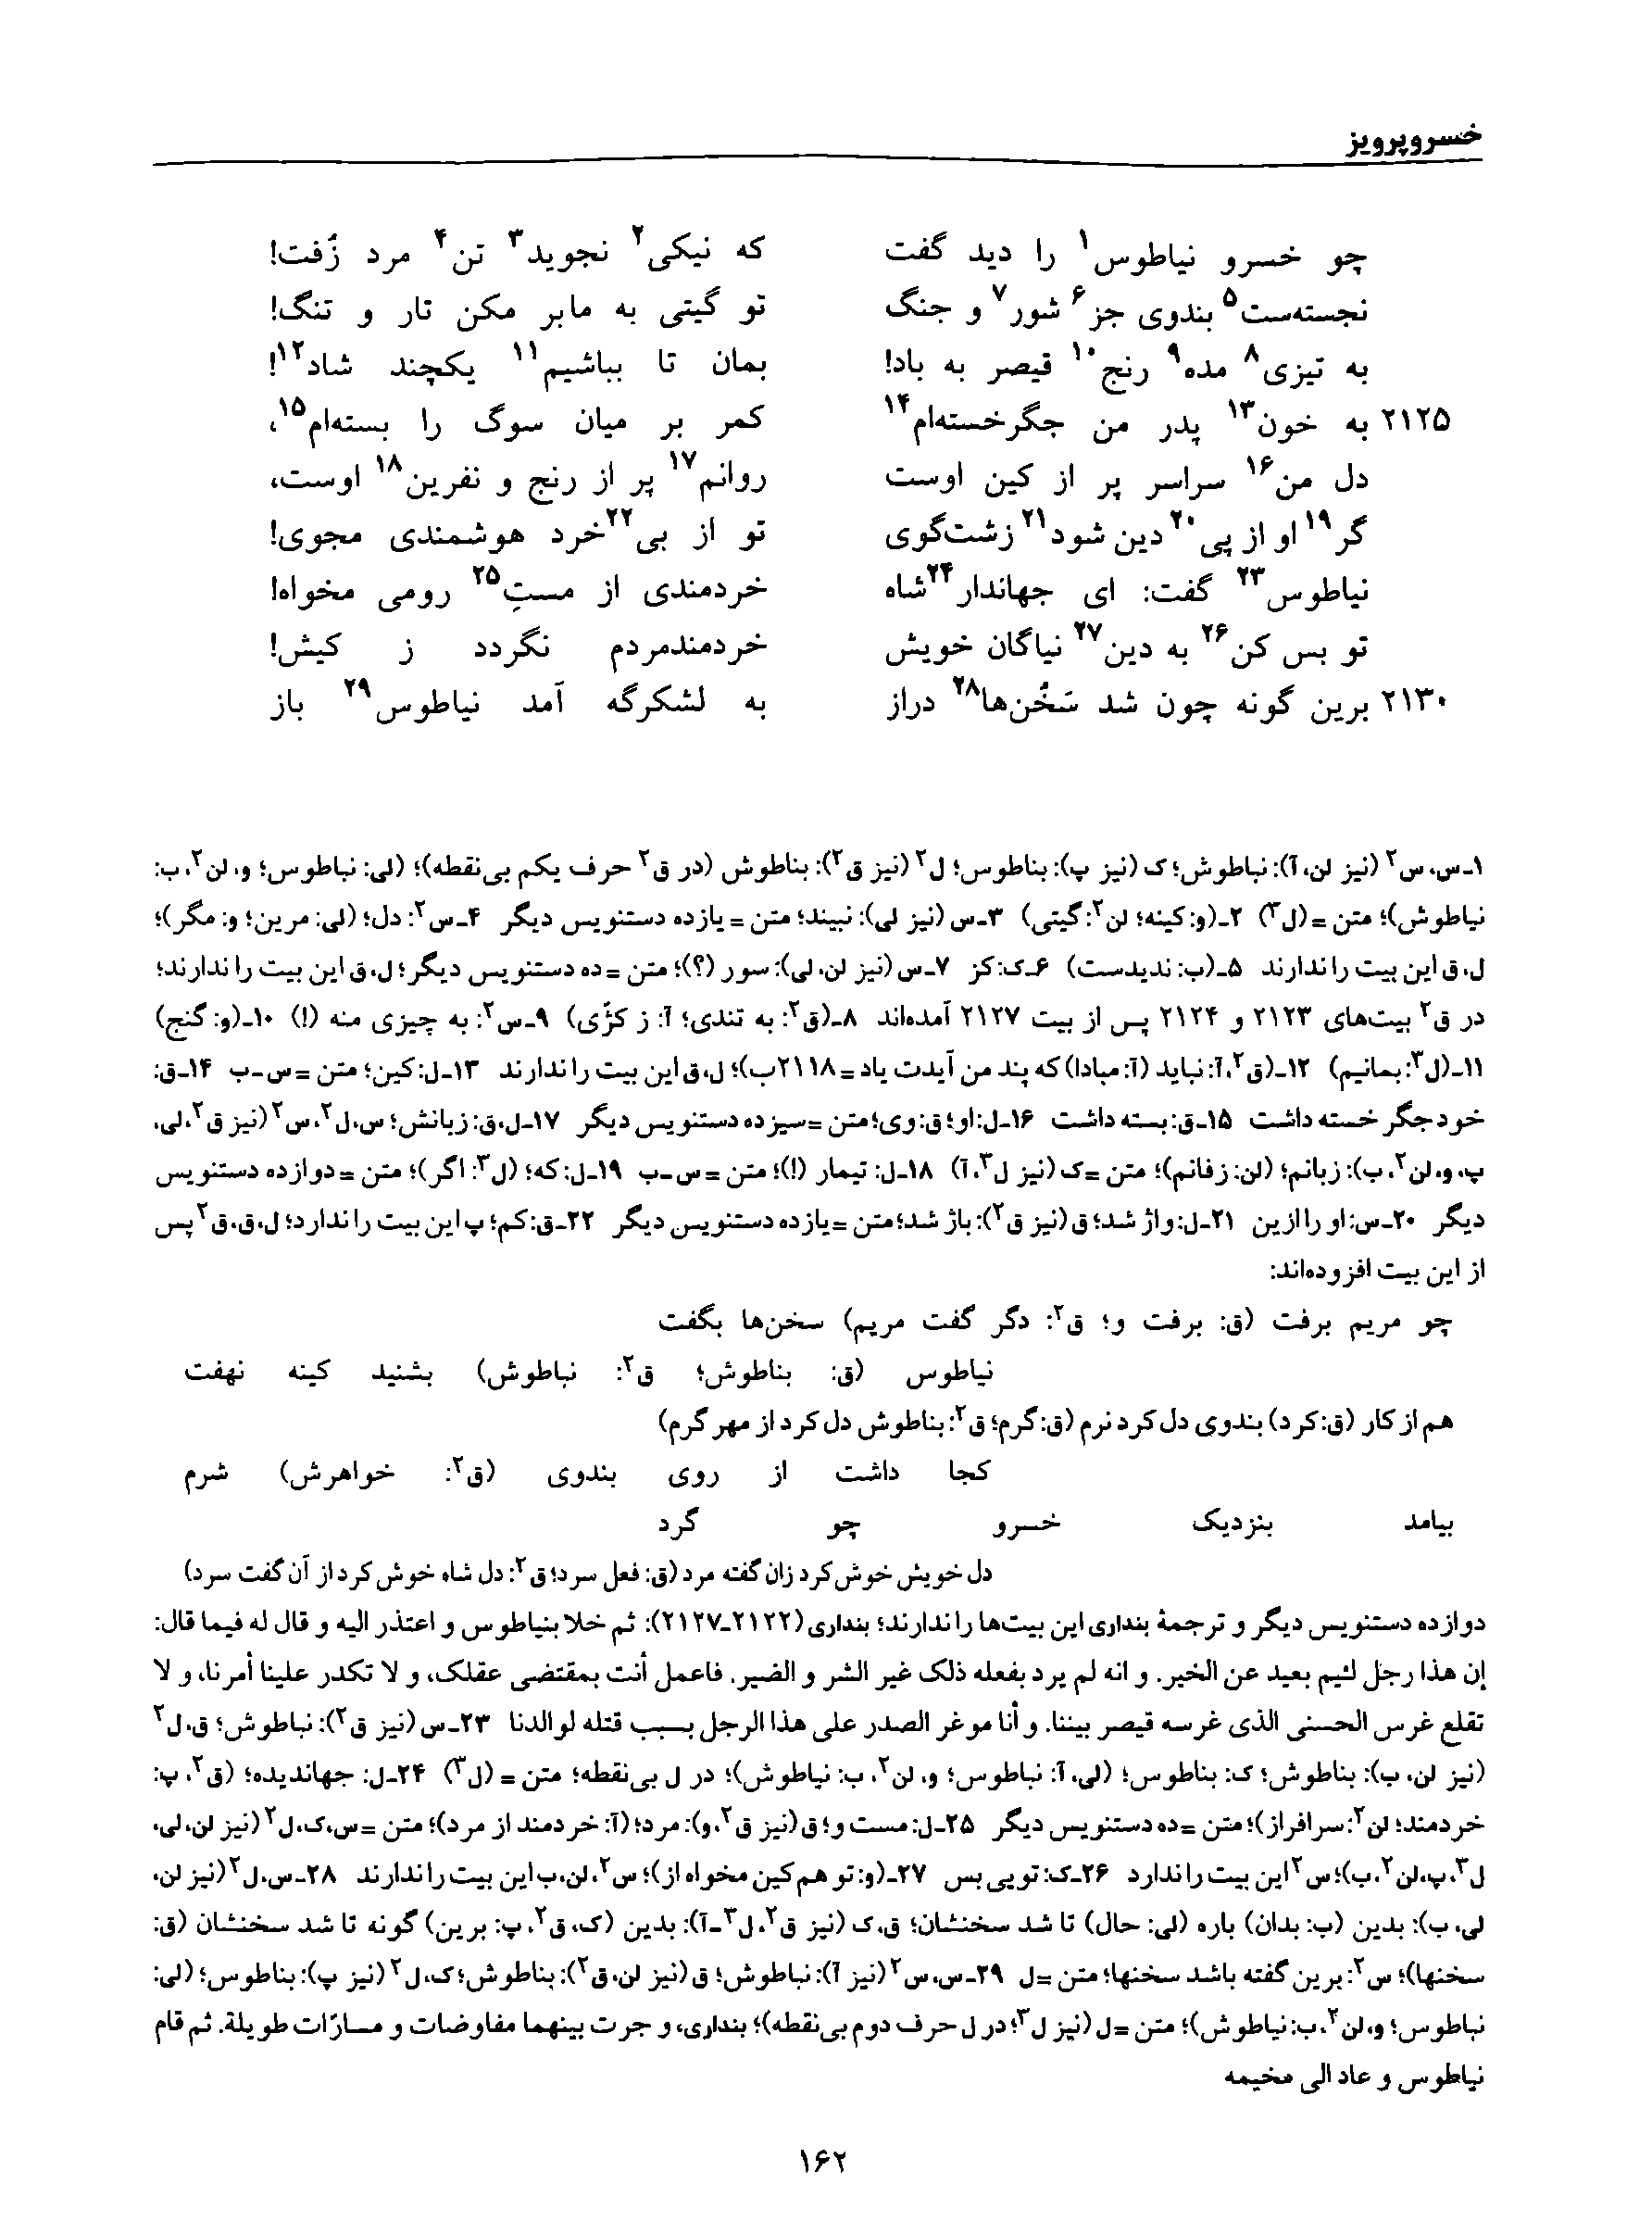 خسروپرویز
چو خسرو نیاطوس۱ را دید گفت که نیکی۲ نجوید۳ تن۴ مرد زُفت!
نجسته‌ست۵ بندوی جز۶ شور۷ و جنگ تو گیتی به مابر مکن تار و تنگ!
به تیزی۸ مده۹ رنج۱۰ قیصر به باد! بمان تا بباشیم۱۱ یکچند شاد۱۲!
۲۱۲۵ به خون۱۳ پدر من جگرخسته‌ام۱۴ کمر بر میان سوگ را بسته‌ام۱۵،
دل من۱۶ سراسر پر از کین اوست روانم۱۷ پر از رنج و نفرین۱۸ اوست،
گر۱۹ او از پی۲۰ دین شود۲۱ زشت‌گوی تو از بی۲۲خرد هوشمندی مجوی!
نیاطوس۲۳ گفت: ای جهاندار۲۴شاه خردمندی از مستِ۲۵ رومی مخواه!
تو بس کن۲۶ به دین۲۷ نیاگان خویش خردمندمردم نگردد ز کیش!
۲۱۳۰ برین گونه چون شد سَخُن‌ها۲۸ دراز به لشکرگه آمد نیاطوس۲۹ باز
۱ـ س، س۲ (نیز لن، آ): نباطوش؛ ک (نیز پ): بناطوس؛ ل۲ (نیز ق۲): بناطوش (در ق۲ حرف یکم بی‌نقطه)؛ (لی: نباطوس؛ و، لن۲، ب:
نیاطوش)؛ متن = (ل۳) ۲ـ (و: کینه؛ لن۲: گیتی) ۳ـ س (نیز لی): نبیند؛ متن = یازده دستنویس دیگر ۴ـ س۲: دل؛ (لی: مرین؛ و: مگر)؛
ل، ق این بیت را ندارند ۵ـ (ب: ندیدست) ۶ـ ک: کز ۷ـ س (نیز لن، لی): سور (؟)؛ متن = ده دستنویس دیگر؛ ل، ق این بیت را ندارند؛
در ق۲ بیت‌های ۲۱۲۳ و ۲۱۲۴ پس از بیت ۲۱۲۷ آمده‌اند ۸ـ (ق۲: به تندی؛ آ: ز کژّی) ۹ـ س۲: به چیزی منه (!) ۱۰ـ (و: گنج)
۱۱ـ (ل۳: بمانیم) ۱۲ـ (ق۲، آ: نباید (آ: مبادا) که پند من آیدت یاد = ۲۱۱۸ب)؛ ل، ق این بیت را ندارند ۱۳ـ ل: کین؛ متن = س ـ ب ۱۴ـ ق:
خود جگر خسته داشت ۱۵ـ ق: بسته داشت ۱۶ـ ل: او؛ ق: وی؛ متن = سیزده دستنویس دیگر ۱۷ـ ل، ق: زبانش؛ س، ل۲، س۲ (نیز ق۲، لی،
پ، و، لن۲، ب): زبانم؛ (لن: زفانم)؛ متن = ک (نیز ل۳، آ) ۱۸ـ ل: تیمار (!)؛ متن = س ـ ب ۱۹ـ ل: که؛ (ل۳: اگر)؛ متن = دوازده دستنویس
دیگر ۲۰ـ س: او را ازین ۲۱ـ ل: واژ شد؛ ق (نیز ق۲): باژ شد؛ متن = یازده دستنویس دیگر ۲۲ـ ق: کم؛ پ این بیت را ندارد؛ ل، ق، ق۲ پس
از این بیت افزوده‌اند:
چو مریم برفت (ق: برفت و؛ ق۲: دگر گفت مریم) سخن‌ها بگفت
نیاطوس (ق: بناطوش؛ ق۲: نباطوش) بشنید کینه نهفت
هم از کار (ق: کرد) بندوی دل کرد نرم (ق: گرم؛ ق۲: بناطوش دل کرد از مهر گرم)
کجا داشت از روی بندوی (ق۲: خواهرش) شرم
بیامد بنزدیک خسرو چو گرد
دل خویش خوش کرد زان گفته مرد (ق: فعل سرد؛ ق۲: دل شاه خوش کرد از آن گفت سرد)
دوازده دستنویس دیگر و ترجمهٔ بنداری این بیت‌ها را ندارند؛ بنداری (۲۱۲۲ـ۲۱۲۷): ثم خلا بنیاطوس و اعتذر الیه و قال له فیما قال:
إن هذا رجل لئیم بعید عن الخیر. و انه لم یرد بفعله ذلک غیر الشر و الضیر. فاعمل أنت بمقتضی عقلک، و لا تکدر علینا أمرنا، و لا
تقلع غرس الحسنی الذی غرسه قیصر بیننا. و أنا موغر الصدر علی هذا الرجل بسبب قتله لوالدنا ۲۳ـ س (نیز ق۲): نباطوش؛ ق، ل۲
(نیز لن، ب): بناطوش؛ ک: بناطوس؛ (لی، آ: نباطوس؛ و، لن۲، ب: نیاطوش)؛ در ل بی‌نقطه؛ متن = (ل۳) ۲۴ـ ل: جهاندیده؛ (ق۲، پ:
خردمند؛ لن۲: سرافراز)؛ متن = ده دستنویس دیگر ۲۵ـ ل: مست و؛ ق (نیز ق۲، و): مرد؛ (آ: خردمند از مرد)؛ متن = س، ک، ل۲ (نیز لن، لی،
ل۳، پ، لن۲، ب)؛ س۲ این بیت را ندارد ۲۶ـ ک: تویی بس ۲۷ـ (و: تو هم کین مخواه از)؛ س۲، لن، ب این بیت را ندارند ۲۸ـ س، ل۲ (نیز لن،
لی، ب): بدین (ب: بدان) باره (لی: حال) تا شد سخنشان؛ ق، ک (نیز ق۲، ل۳ـ آ): بدین (ک، ق۲، پ: برین) گونه تا شد سخنشان (ق:
سخنها)؛ س۲: برین گفته باشد سخنها؛ متن = ل ۲۹ـ س، س۲ (نیز آ): نباطوش؛ ق (نیز لن، ق۲): بناطوش؛ ک، ل۲ (نیز پ): بناطوس؛ (لی:
نباطوس؛ و، لن۲، ب: نیاطوش)؛ متن = ل (نیز ل۳؛ در ل حرف دوم بی‌نقطه)؛ بنداری، و جرت بینهما مفاوضات و مسارّات طویلة. ثم قام
نیاطوس و عاد الی مخیمه
۱۶۲